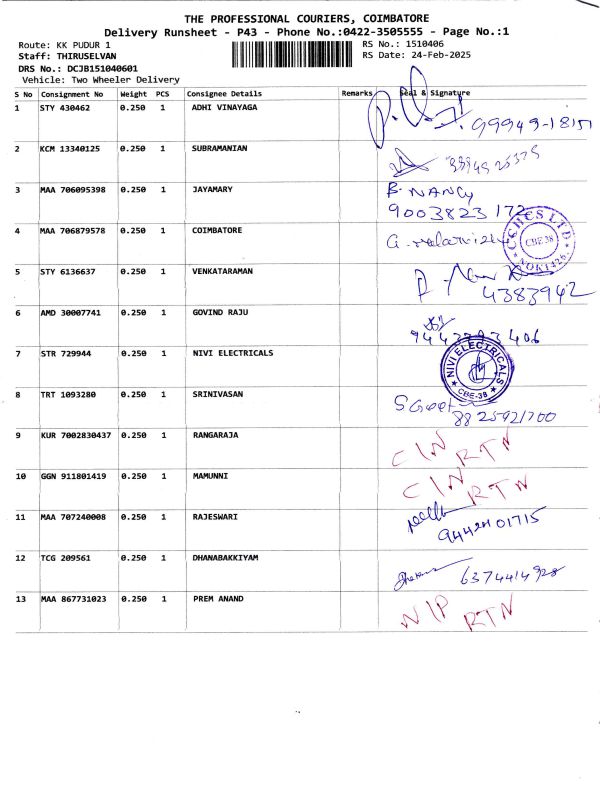 THE PROFESSIONAL COURIERS, COIMBATORE
Delivery Runsheet - P43 - Phone No.:0422-3505555 - Page No.:1
Route: KK PUDUR 1 RS No.: 1510406
Staff: THIRUSELVAN RS Date: 24-Feb-2025
DRS No.: DCJB151040601
Vehicle: Two Wheeler Delivery
S No Consignment No Weight PCS Consignee Details Remarks Seal & Signature
1 STY 430462 0.250 1 ADHI VINAYAGA
2 KCM 13340125 0.250 1 SUBRAMANIAN
3 MAA 706095398 0.250 1 JAYAMARY B. NANCY
9003823 172
4 MAA 706879578 0.250 1 COIMBATORE CCHCS LTD CBE-38
5 STY 6136637 0.250 1 VENKATARAMAN
4383942
6 AMD 30007741 0.250 1 GOVIND RAJU
7 STR 729944 0.250 1 NIVI ELECTRICALS NIVI ELECTRICALS CBE-38
8 TRT 1093280 0.250 1 SRINIVASAN
9 KUR 7002830437 0.250 1 RANGARAJA C/N RTN
10 GGN 911801419 0.250 1 MAMUNNI C/N RTN
11 MAA 707240008 0.250 1 RAJESWARI
12 TCG 209561 0.250 1 DHANABAKKIYAM
13 MAA 867731023 0.250 1 PREM ANAND N/P RTN